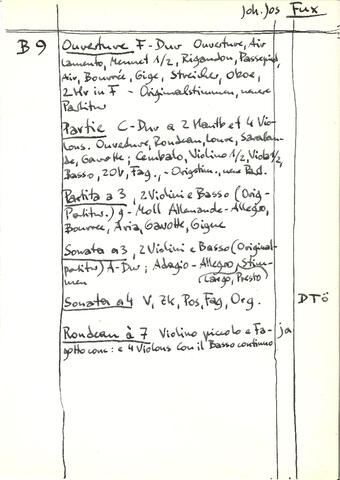 Joh. Jos Fux
B 9 Ouverture F-Dur Ouverture, Air
Lamento, Menuet 1/2, Rigaudon, Passepied,
Air, Bourrée, Gige, Streicher, Oboe,
2 Hr in F - Originalstimmen, neuere
Partitur
Partie C-Dur a 2 Hautb et 4 Vio-
lons. Ouverture, Rondeau, Loure, Saraban-
de, Gavotte; Cembalo, Violino 1/2, Viola 1/2,
Basso, 2 Ob, Fag., - Origstim., neue Part.
Partita a 3, 2 Violini e Basso (Orig-
Partitur.) g-Moll Allemande-Allegro,
Bourree, Aria, Gavotte, Gigue
Sonata a 3, 2 Violini e Basso (Original-
partitur) A-Dur; Adagio - Allegro, Stim-
men (Largo, Presto)
Sonata a 4 V, Zk, Pos, Fag, Org. DTÖ
Rondeau à 7 Violino piccolo e Fa- ja
gotto con: e 4 Violons con il Basso continuo